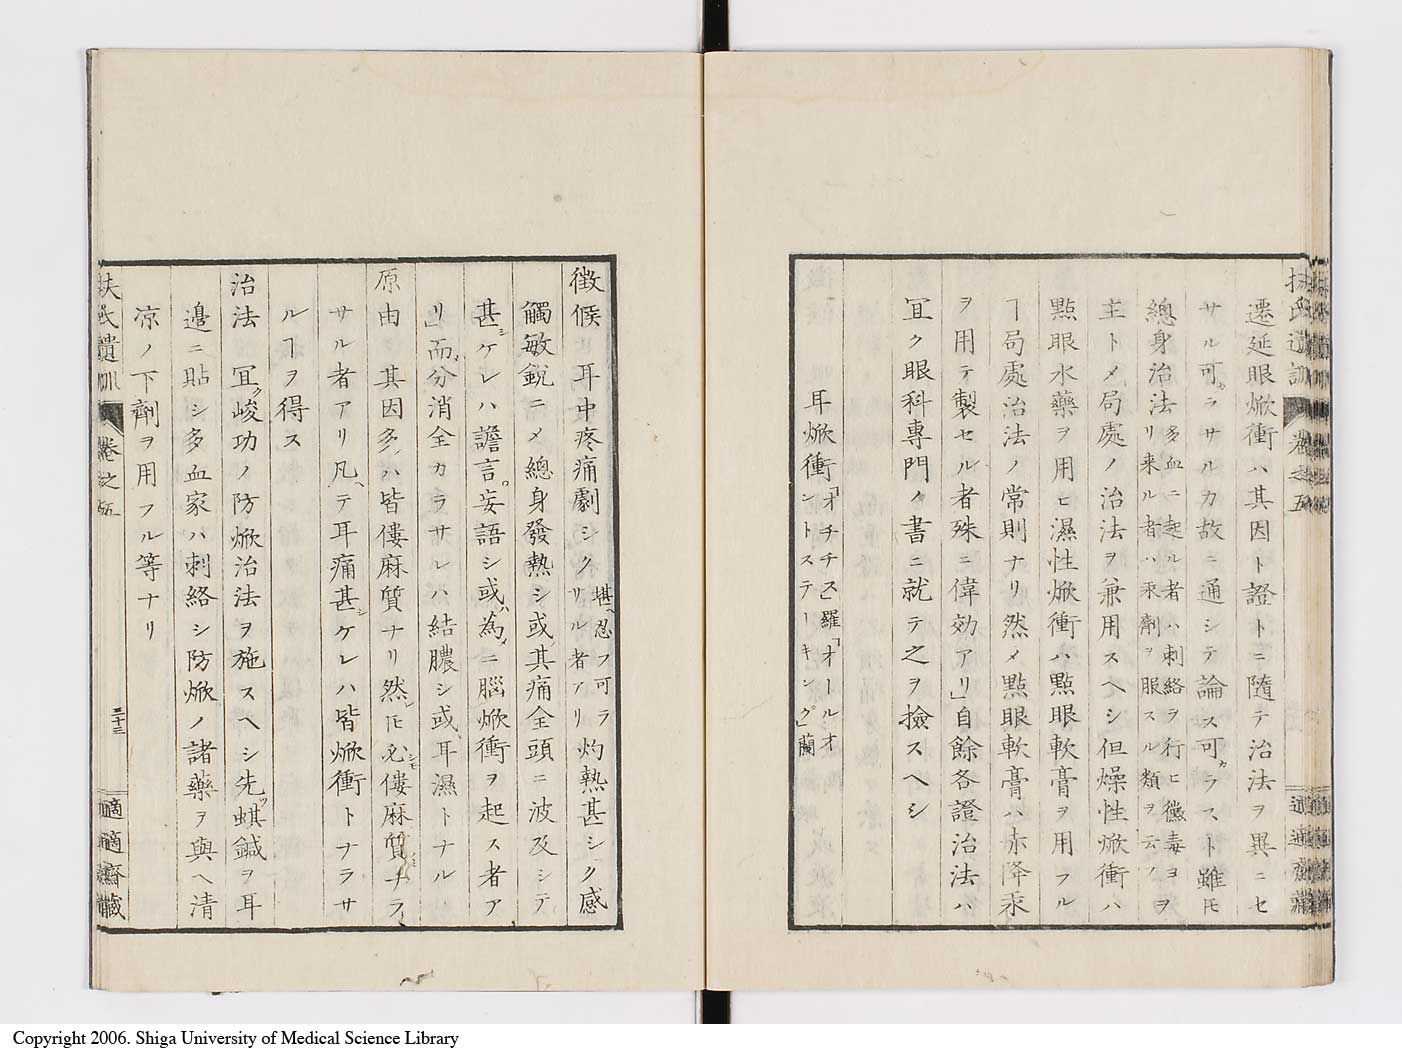 扶氏遺訓 巻之五 適適齋藏
遷延眼焮衝ハ其因ト證トニ隨テ治法ヲ異ニセ
サル可カラサルカ故ニ通シテ論ス可カラスト雖𪜈
總身治法多血ニ起ル者ハ刺絡ヲ行ヒ黴毒ヨリ来ル者ハ汞劑ヲ服スル類ヲ云フヲ
主トメ局處ノ治法ヲ兼用スヘシ但燥性焮衝ハ
點眼水藥ヲ用ヒ濕性焮衝ハ點眼軟膏ヲ用フル
ヿ局處治法ノ常則ナリ然メ點眼軟膏ハ赤降汞
ヲ用テ製セル者殊ニ偉効アリ」自餘各證治法ハ
冝ク眼科專門ノ書ニ就テ之ヲ撿スヘシ
耳焮衝「オチチス」羅「オールオントステーキング」蘭
徴候 耳中疼痛劇シク堪ヘ忍フ可ラサル者アリ灼熱甚シク感
觸敏鋭ニメ總身發熱シ或ハ其痛全頭ニ波及シテ
甚シケレハ譫言妄語シ或ハ為メニ腦焮衝ヲ起ス者ア
リ」而メ分消全カラサレハ結膿シ或ハ耳濕トナル
原由 其因多クハ皆僂麻質ナリ然シ𪜈必シモ僂麻質ナラ
サル者アリ凡ヘテ耳痛甚シケレハ皆焮衝トナラサ
ルヿヲ得ス
治法 冝ク峻功ノ防焮治法ヲ施スヘシ先ツ蜞鍼ヲ耳
邉ニ貼シ多血家ハ刺絡シ防焮ノ諸藥ヲ與ヘ清
凉ノ下劑ヲ用フル等ナリ
扶氏遺訓 巻之五 三十三 適適齋藏
Copyright 2006. Shiga University of Medical Science Library